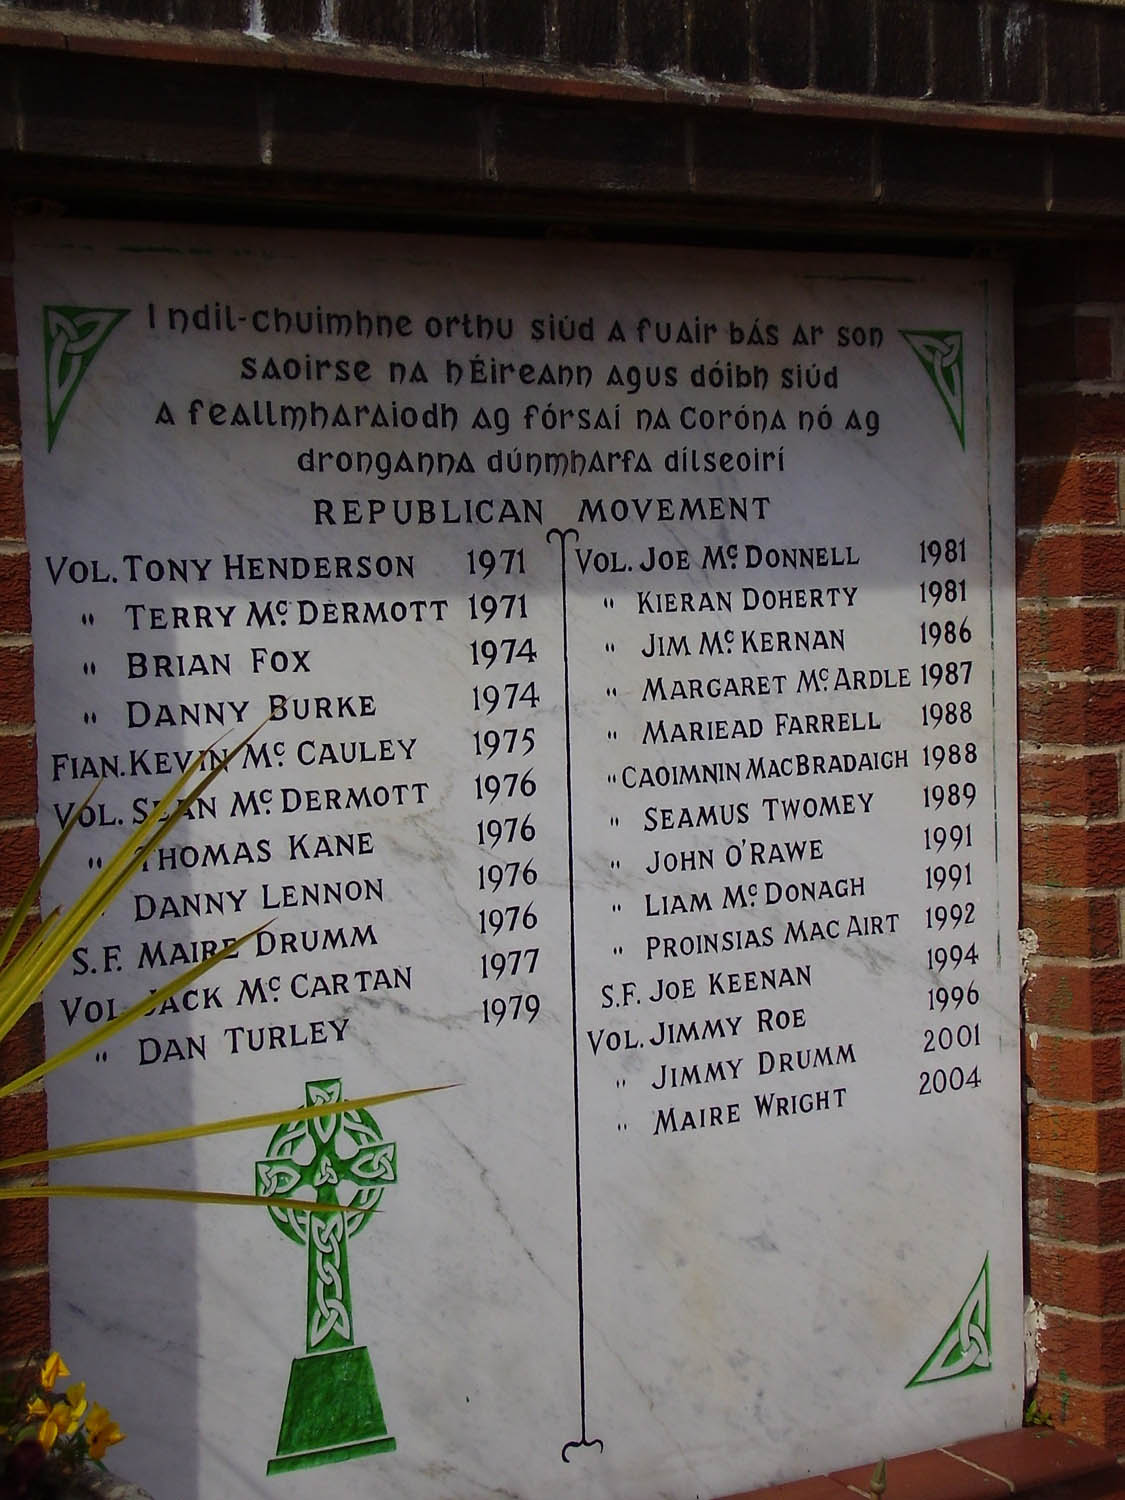 I ndil-chuimhne orthu siúd a fuair bás ar son
saoirse na hÉireann agus dóibh siúd
a feallmharaiodh ag fórsaí na Coróna nó ag
dronganna dúnmharfa dílseoirí
REPUBLICAN MOVEMENT
VOL. TONY HENDERSON 1971
" TERRY Mc. DERMOTT 1971
" BRIAN FOX 1974
" DANNY BURKE 1974
FIAN. KEVIN Mc. CAULEY 1975
VOL. SEAN Mc. DERMOTT 1976
" THOMAS KANE 1976
" DANNY LENNON 1976
S.F. MAIRE DRUMM 1976
VOL. JACK Mc. CARTAN 1977
" DAN TURLEY 1979
VOL. JOE Mc. DONNELL 1981
" KIERAN DOHERTY 1981
" JIM Mc. KERNAN 1986
" MARGARET Mc. ARDLE 1987
" MARIEAD FARRELL 1988
" CAOIMNIN MACBRADAIGH 1988
" SEAMUS TWOMEY 1989
" JOHN O'RAWE 1991
" LIAM Mc. DONAGH 1991
" PROINSIAS MAC AIRT 1992
S.F. JOE KEENAN 1994
VOL. JIMMY ROE 1996
" JIMMY DRUMM 2001
" MAIRE WRIGHT 2004